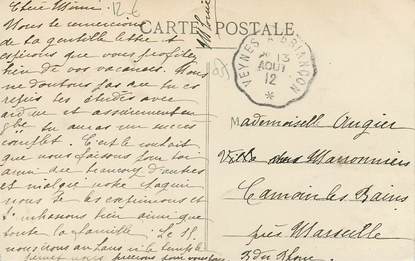 Chère Mimi
12-6
Nous te remercions
de ta gentille lettre et
espérons que vous profitez
bien de vos vacances. Nous
ne doutons pas que tu as
repris tes études avec
ardeur et assurément
tu auras un succès
complet. C'est le souhait
que nous faisons pour toi
ainsi que d'autres
et malgré notre
nous te les exprimons et
t'embrassons bien ainsi que
toute la famille. Le 18
nous irons au Laus si le temps le
permet nous prierons pour vous tous
CARTE POSTALE
VEYNES A BRIANÇON
13
AOUT
12
Mademoiselle Augier
Villa des Marronniers
Camoins les Bains
près Marseille
B. du Rhône